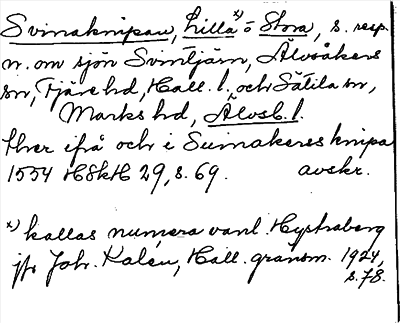 Svinaknipan, Lilla x) o Stora, s. resp.
n. om sjön Svintjärn, Älvsåkers
sn, Fjäre hd, Hall. l. och Sätila sn,
Marks hd, Älvsb. l.
ther ifrå och i Suinakeress knipa
1554 HSkH 29, s. 69. avskr.
x) kallas numera vanl. Hystraberg
jfr Joh. Kalén, Hall. gränsm. 1924,
s. 78.